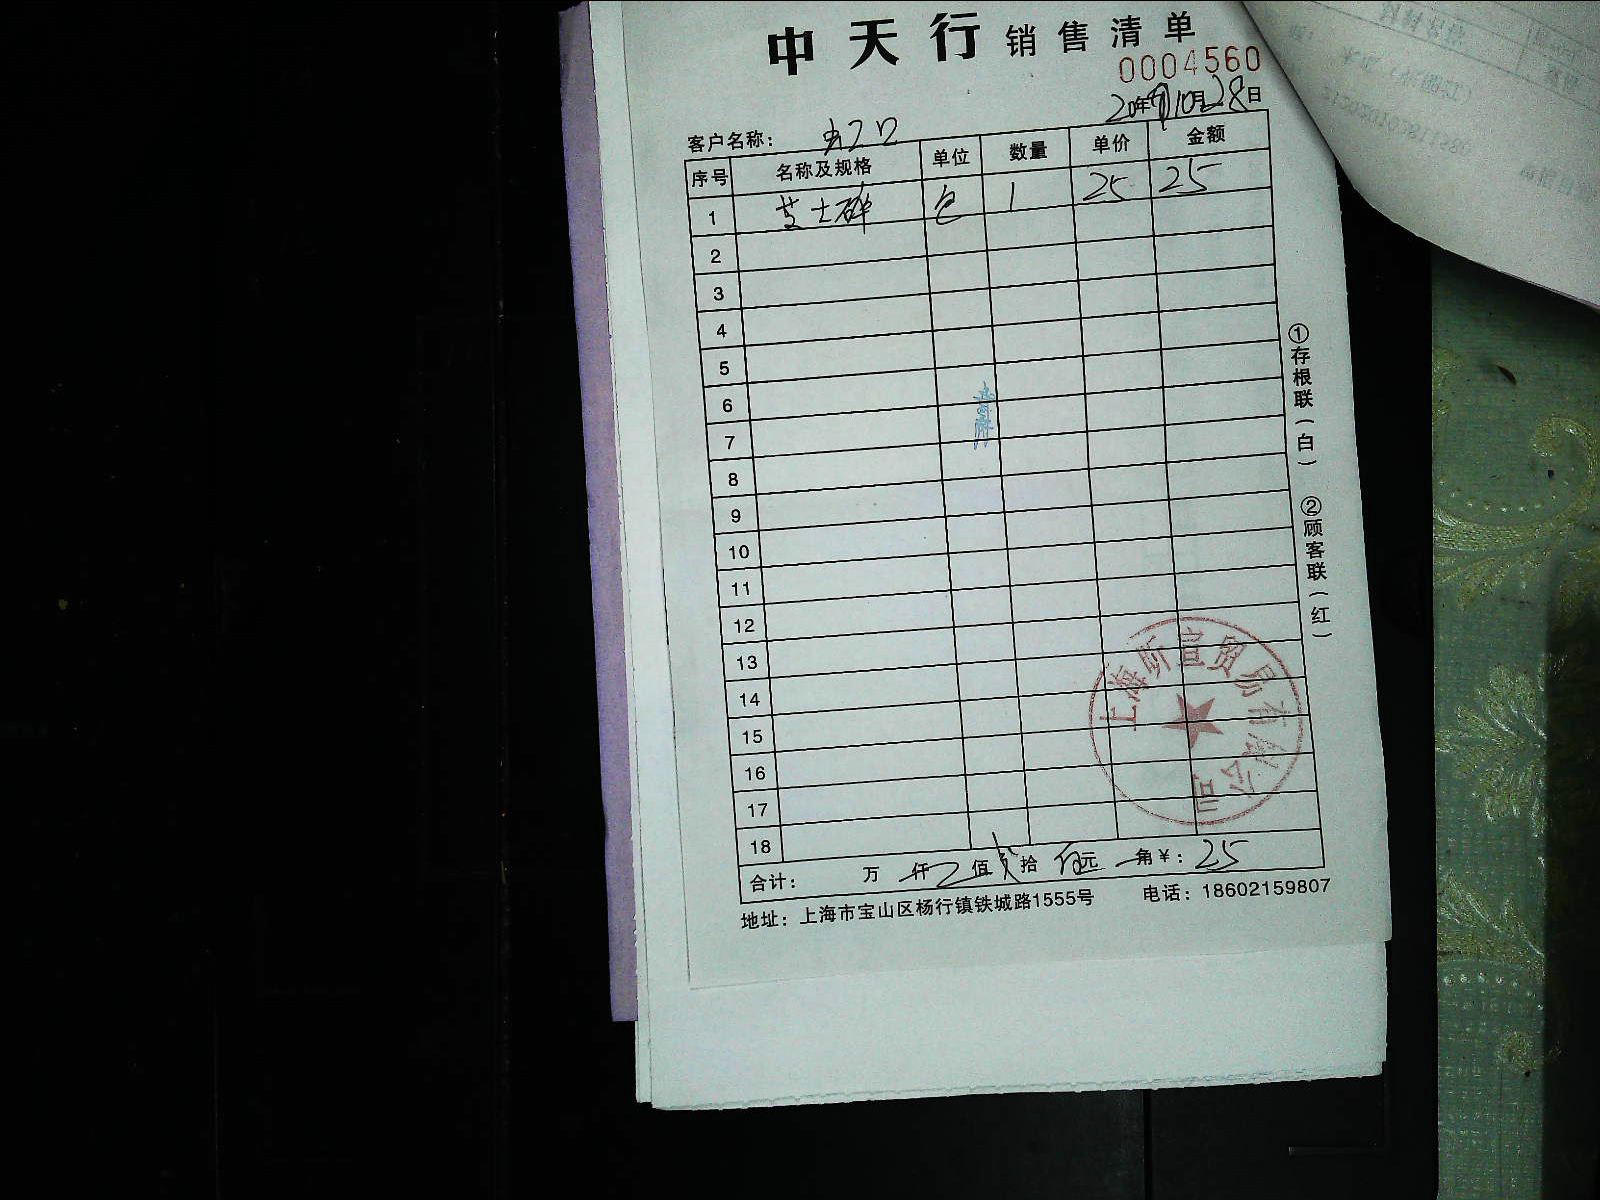 中天行 销售清单
0004560
20年10月28日
客户名称：
序号 名称及规格 单位 数量 单价 金额
1 芝士碎 包 1 25 25
2
3
4
5
6
7
8
9
10
11
12
13
14
15
16
17
18
合计： 万 仟 佰 贰拾 伍元 角￥：25
地址：上海市宝山区杨行镇铁城路1555号 电话：18602159807
①存根联（白） ②顾客联（红）
上海昕宣贸易有限公司